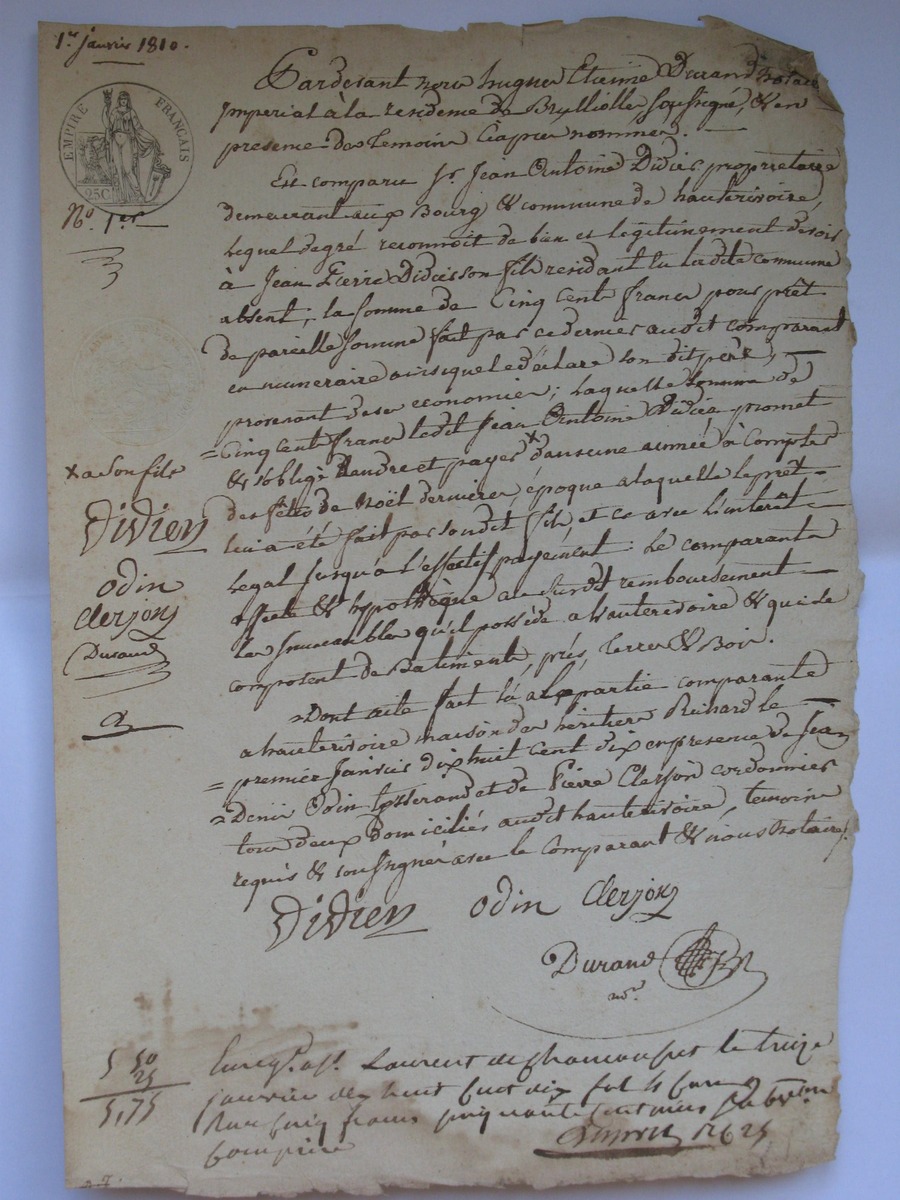 1er janvier 1810.
EMPIRE FRANÇAIS
25C
No. 1er
Pardevant nous hugues Etienne Durand Notaire
Imperial à la residence de Brulliolle soussigné, & en
presence des temoins ciapres nommés.
Est comparu Sr. Jean Antoine Didier proprietaire
demeurant aux Bourg & commune de hauterivoire,
lequel de gré reconnoit de bien et legitimement devoir
à Jean Pierre Didier son fils residant en ladite commune
absent; la somme de Cinq Cent francs pour prêt
de pareille somme fait par ce dernier audit comparant
en numeraire ainsi que le déclare son dit père,
provenant de ses economies; laquelle somme de
= Cinq Cent francs ledit Jean Antoine Didier promet
& s'oblige Rendre et payer x dans une année à compter
des fêtes de Noël dernieres, époque a laquelle le prêt
lui a été fait par sondit fils, et ce avec l'interet
legal jusqu'a l'effectif payement: Le comparant a
affecté & hypothèque au susdit remboursement
les immeubles qu'il possède a hauterivoire & qui se
composent de Batiments, prés, terres & Bois.
Dont acte fait lû a la partie comparante
a hauterivoire maison des héritiers Richard le
= premier Janvier dix huit cent dix en presence de Jean
= Denis Odin tisserand et de Pierre Clerjon cordonnier
tous deux domiciliés audit hauterivoire, temoins
requis & soussignés avec le comparant & nous Notaire.
x a son fils
Didier
odin
Clerjon
Durand
Didier odin Clerjon
Durand
nre.
5 50
25
5,75
Enregé. a St. Laurent de Chamousset le treize
janvier dix huit cent dix fol
Reçu cinq francs cinquante centimes
comprise